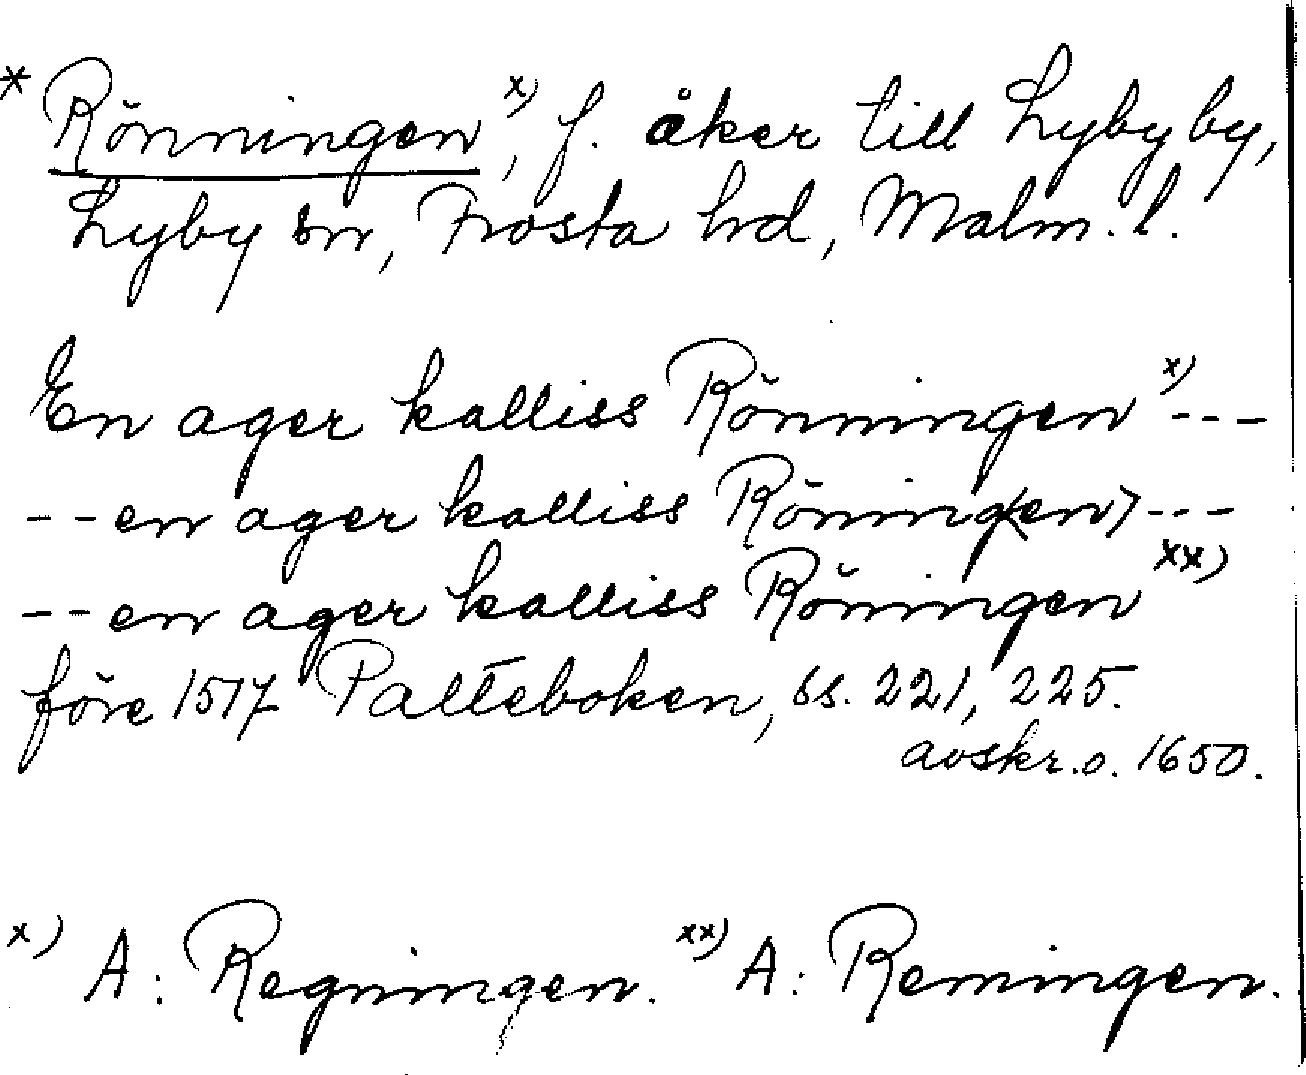 * Rönningen, x) f. åker till Lyby by,
Lyby sn, Frosta hd, Malm. l.
En ager kalliss Rönningen x) ---
-- en ager kalliss Röning<en> ---
-- en ager kalliss Röningen xx)
före 1517 Palteboken, ss. 221, 225.
avskr. o. 1650.
x) A: Regningen. xx) A: Remingen.